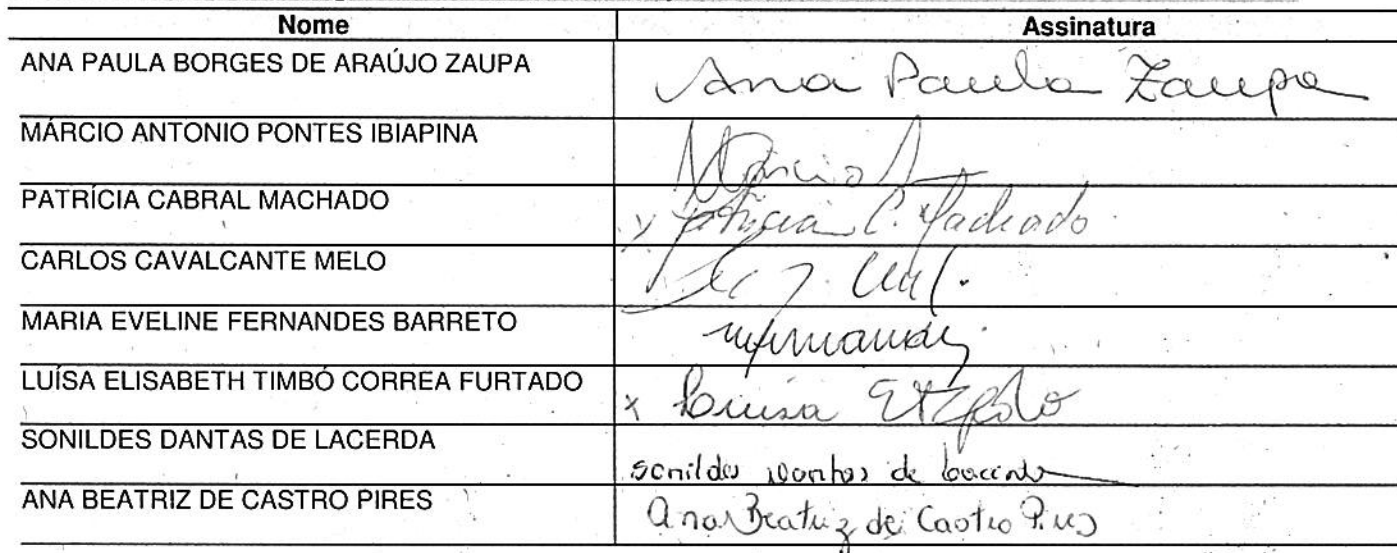 Nome Assinatura
ANA PAULA BORGES DE ARAÚJO ZAUPA Ana Paula Zaupa
MÁRCIO ANTONIO PONTES IBIAPINA Márcio
PATRÍCIA CABRAL MACHADO x Patrícia C. Machado
CARLOS CAVALCANTE MELO
MARIA EVELINE FERNANDES BARRETO
LUÍSA ELISABETH TIMBÓ CORREA FURTADO x Luisa
SONILDES DANTAS DE LACERDA Sonildes Dantas de Lacerda
ANA BEATRIZ DE CASTRO PIRES Ana Beatriz de Castro Pires